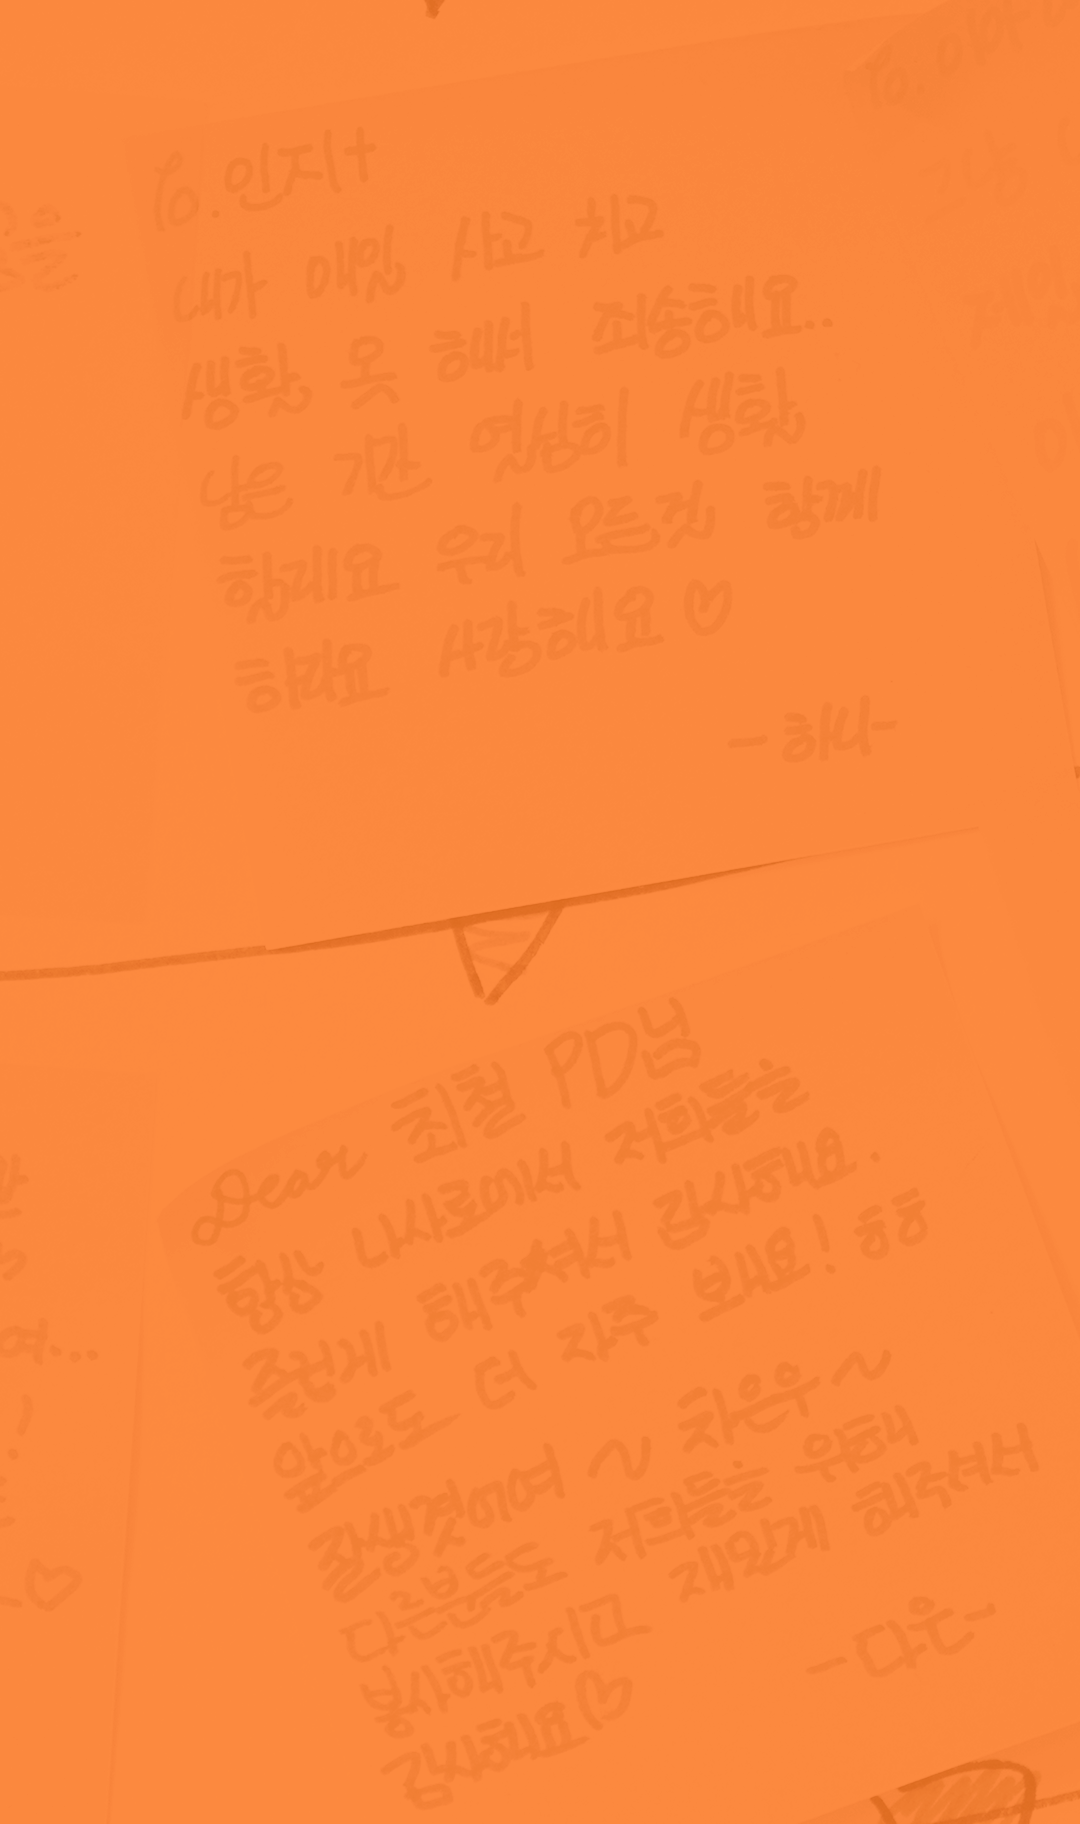 To. 인지t
내가 매일 사고 치고
생활 못 해서 죄송해요..
남은 기간 열심히 생활
할래요 우리 모든것 함께
하라요 사랑해요♡
- 하나 -
Dear 최철 PD님
항상 나사로에서 저희들을
즐겁게 해주셔서 감사해요.
앞으로도 더 자주 보내요! ㅎㅎ
잘생겻어여 ~ 차은우~
다른분들도 저희들을 위해
봉사해주시고 재밌게 해주셔서
감사해요♡
- 다은 -